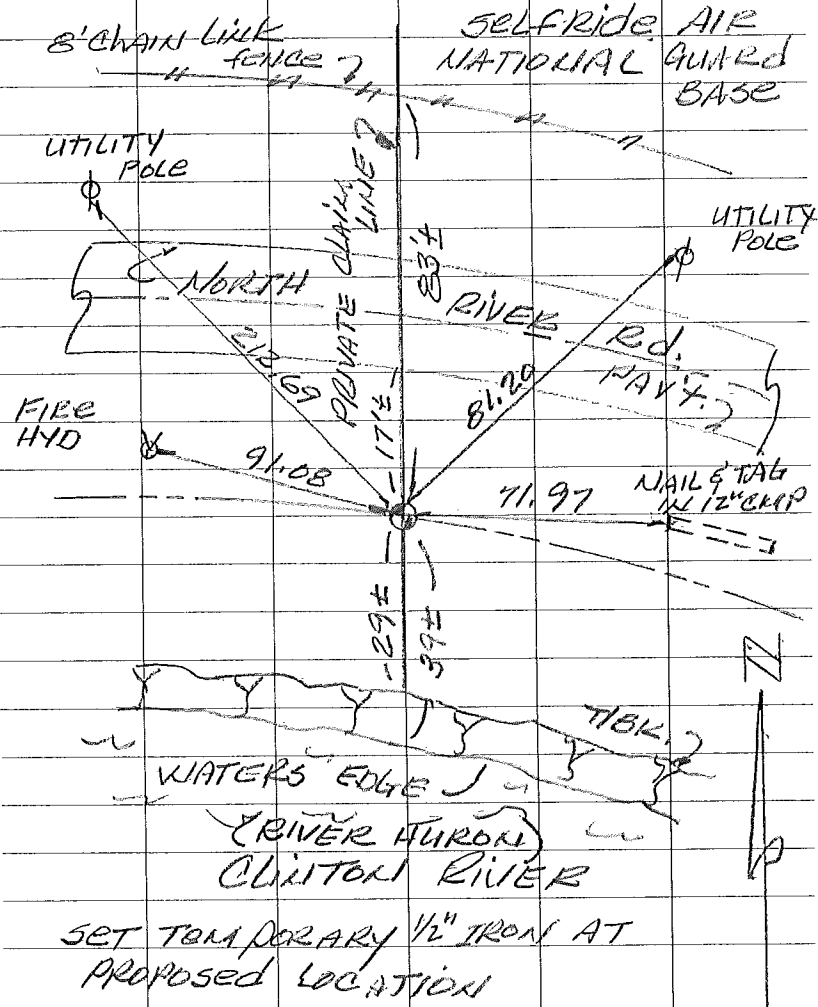 8' CHAIN LINK
fence
SELFRIDE AIR
NATIONAL GUARD
BASE
UTILITY
POLE
UTILITY
POLE
PRIVATE CLAIM
LINE
83'±
NORTH
RIVER
Rd.
PAV'T.
212.69
81.20
17'±
FIRE
HYD
91.08
71.97
NAIL & TAG
IN 12" CMP
29±
39±
N
T/BK.
WATERS EDGE
(RIVER HURON)
CLINTON RIVER
SET TEMPORARY 1/2" IRON AT
PROPOSED LOCATION